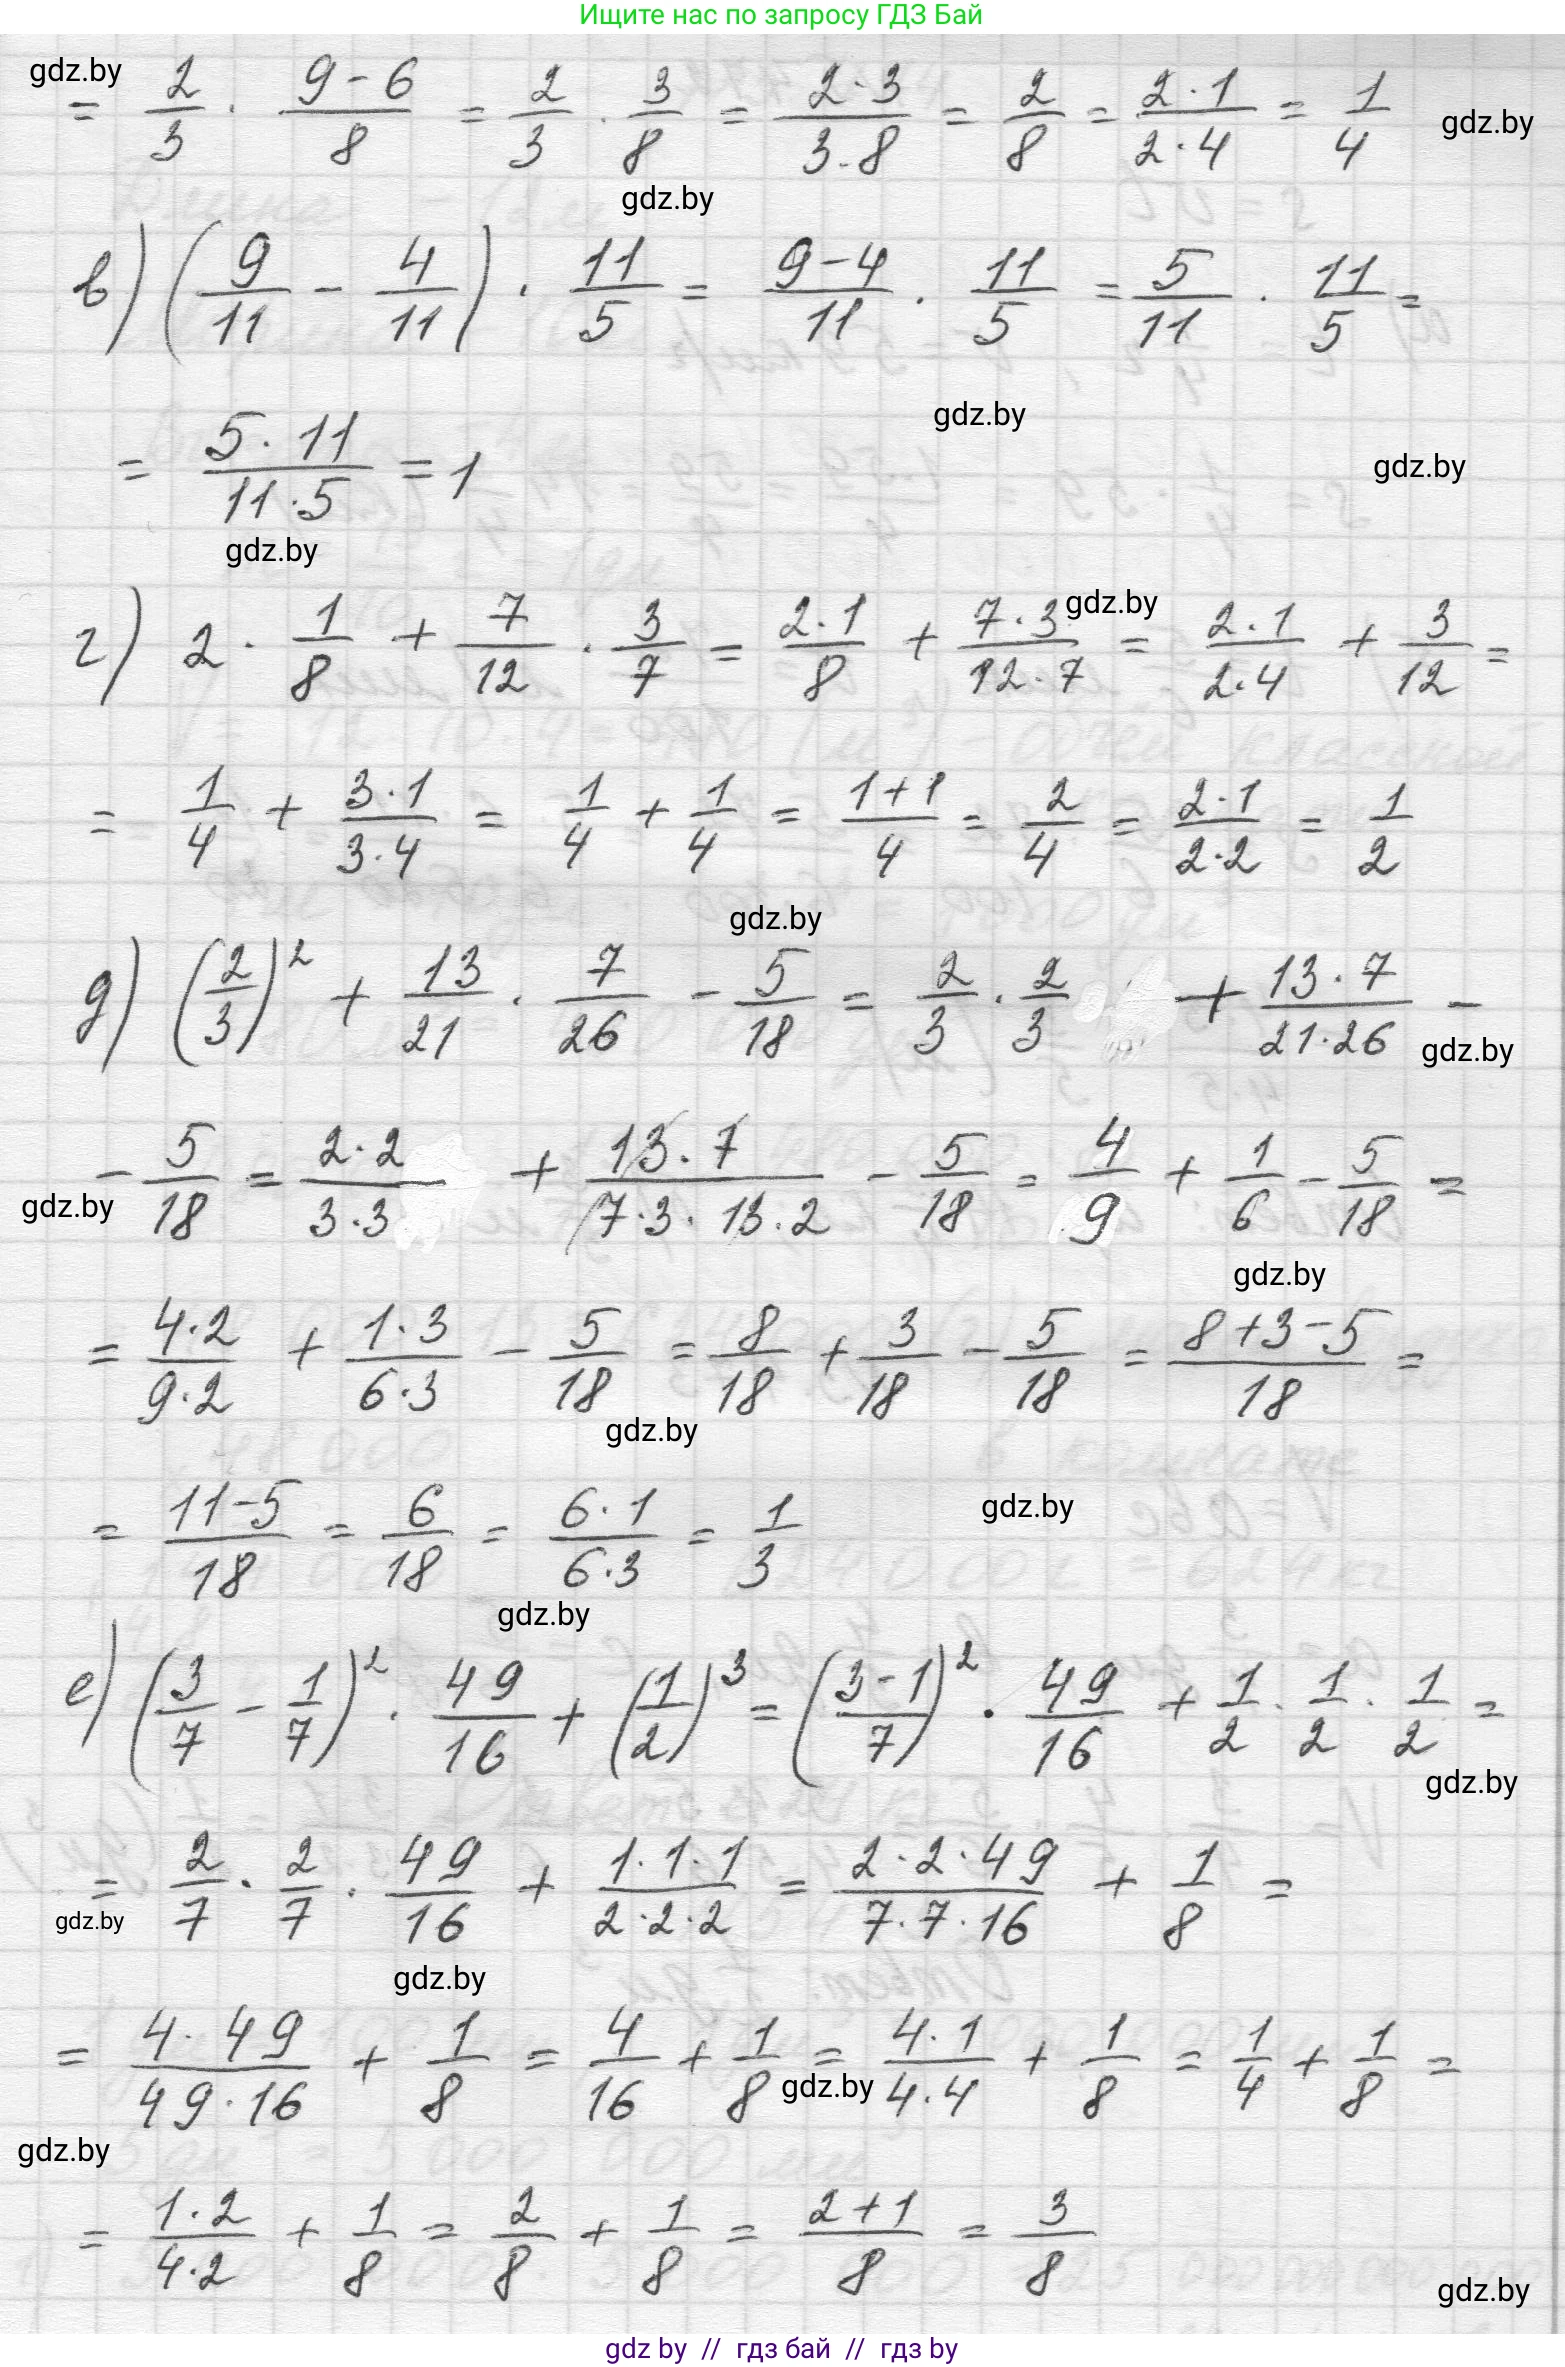 Ищите нас по запросу ГДЗ Бай
gdz.by
= 2/3 · (9-6)/8 = 2/3 · 3/8 = (2·3)/(3·8) = 2/8 = (2·1)/(2·4) = 1/4
gdz.by
gdz.by
в) (9/11 - 4/11) · 11/5 = (9-4)/11 · 11/5 = 5/11 · 11/5 =
gdz.by
= (5·11)/(11·5) = 1
gdz.by
gdz.by
г) 2 · 1/8 + 7/12 · 3/7 = (2·1)/8 + (7·3)/(12·7) = (2·1)/(2·4) + 3/12 =
gdz.by
= 1/4 + (3·1)/(3·4) = 1/4 + 1/4 = (1+1)/4 = 2/4 = (2·1)/(2·2) = 1/2
gdz.by
д) (2/3)² + 13/21 · 7/26 - 5/18 = 2/3 · 2/3 + (13·7)/(21·26) -
gdz.by
- 5/18 = (2·2)/(3·3) + (13·7)/(7·3·13·2) - 5/18 = 4/9 + 1/6 - 5/18 =
gdz.by
gdz.by
= (4·2)/(9·2) + (1·3)/(6·3) - 5/18 = 8/18 + 3/18 - 5/18 = (8+3-5)/18 =
gdz.by
= (11-5)/18 = 6/18 = (6·1)/(6·3) = 1/3
gdz.by
gdz.by
е) (3/7 - 1/7)² · 49/16 + (1/2)³ = ((3-1)/7)² · 49/16 + 1/2 · 1/2 · 1/2 =
gdz.by
= 2/7 · 2/7 · 49/16 + (1·1·1)/(2·2·2) = (2·2·49)/(7·7·16) + 1/8 =
gdz.by
gdz.by
= (4·49)/(49·16) + 1/8 = 4/16 + 1/8 = (4·1)/(4·4) + 1/8 = 1/4 + 1/8 =
gdz.by
gdz.by
= (1·2)/(4·2) + 1/8 = 2/8 + 1/8 = (2+1)/8 = 3/8
gdz.by
gdz by // гдз бай // гдз by